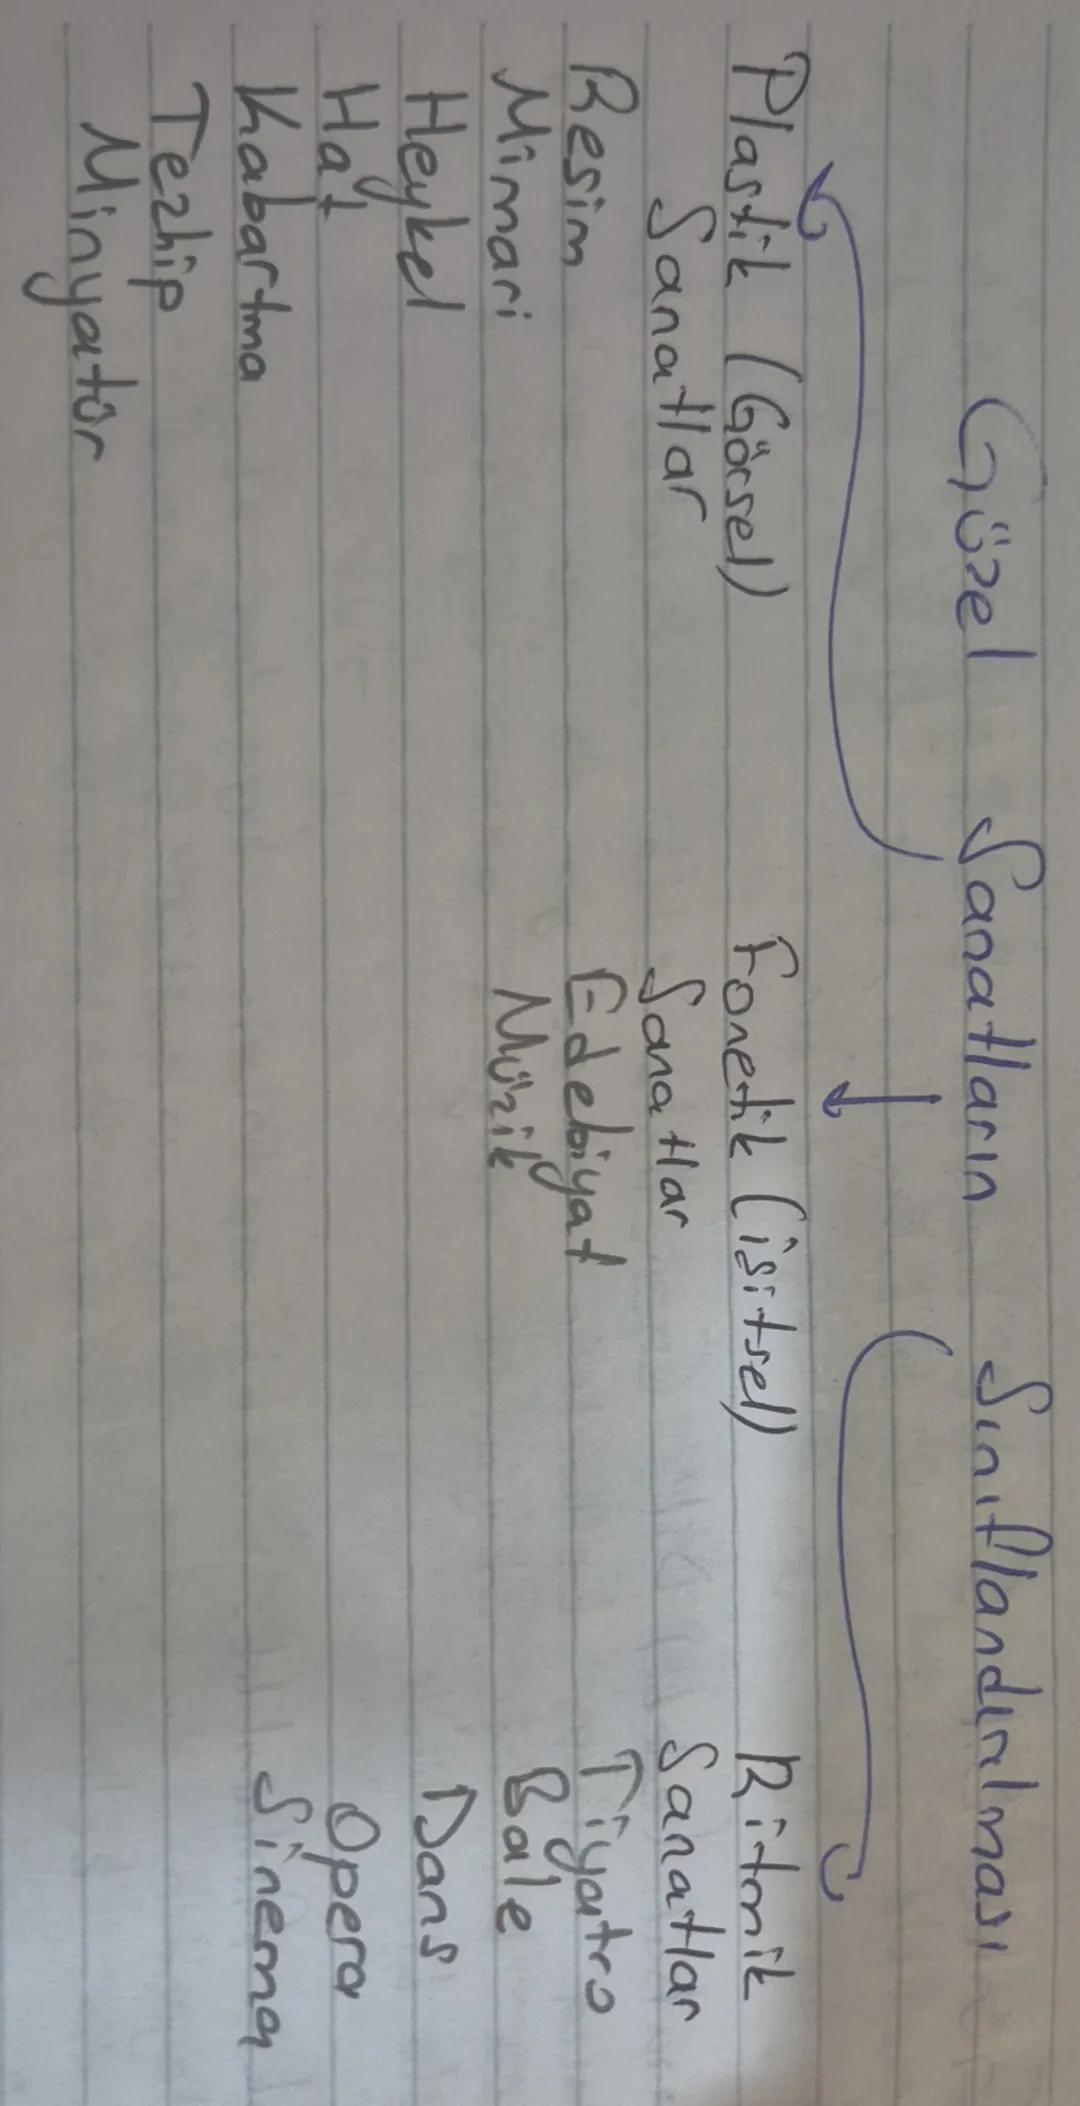 Güzel Sanatların Sınıflandırılması
Plastik (Görsel)
Sanatlar
Resim
Mimari
Heykel
Hat
Kabartma
Tezhip
Minyatür
Fonetik (işitsel)
Sanatlar
Edebiyat
Müzik
Ritmik
Sanatlar
Tiyatro
Bale
Dans
Opera
Sinema